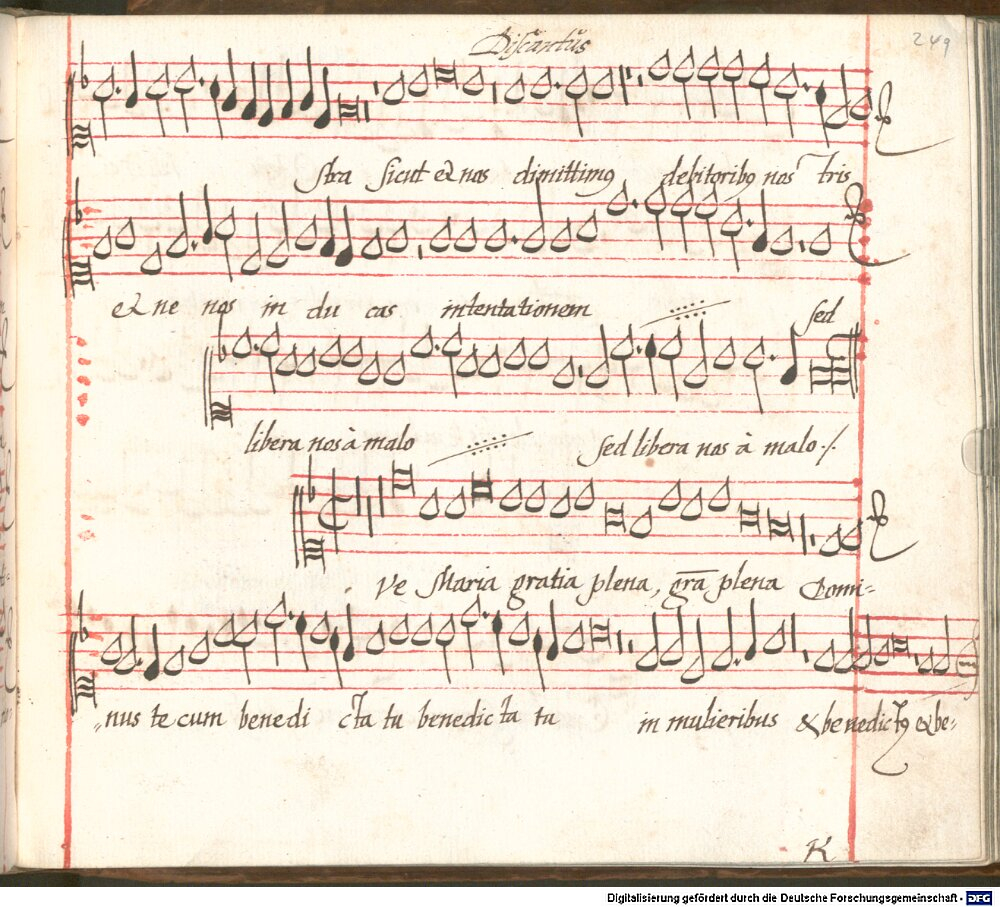 Discantus
249
stra sicut & nos dimittimus debitoribus nostris
& ne nos in du cas intentationem sed
libera nos à malo sed libera nos à malo ./.
Ve Maria gratia plena, grā plena Domi-
nus te cum benedi cta tu benedicta tu in mulieribus & benedictus & be-
K
Digitalisierung gefördert durch die Deutsche Forschungsgemeinschaft - DFG